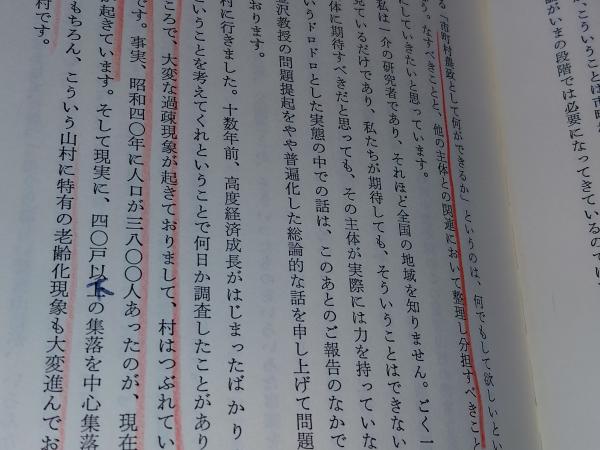 こういうことは市町
いまの段階では必要になってきているのでは
る「市町村農政として何ができるか」というのは、何でもして欲しいとい
う。なすべきことと、他の主体との関連において整理し分担すべきこと
にしていきたいと思っています。
私は一介の研究者であり、それほど全国の地域を知りません。ごく一
見ているだけであり、私たちが期待しても、そういうことはできない
体に期待すべきだと思っても、その主体が実際には力を持っていな
いうドロドロとした実態の中での話は、このあとのご報告のなかで
沢教授の問題提起をやや普遍化した総論的な話を申し上げて問題
おります。
村に行きました。十数年前、高度経済成長がはじまったばかり
ということを考えてくれということで何日か調査したことがあり
ころで、大変な過疎現象が起きておりまして、村はつぶれてい
です。事実、昭和四〇年に人口が三八〇〇人あったのが、現在
が起きています。そして現実に、四〇戸以下の集落を中心集落
もちろん、こういう山村に特有の老齢化現象も大変進んでお
村です。